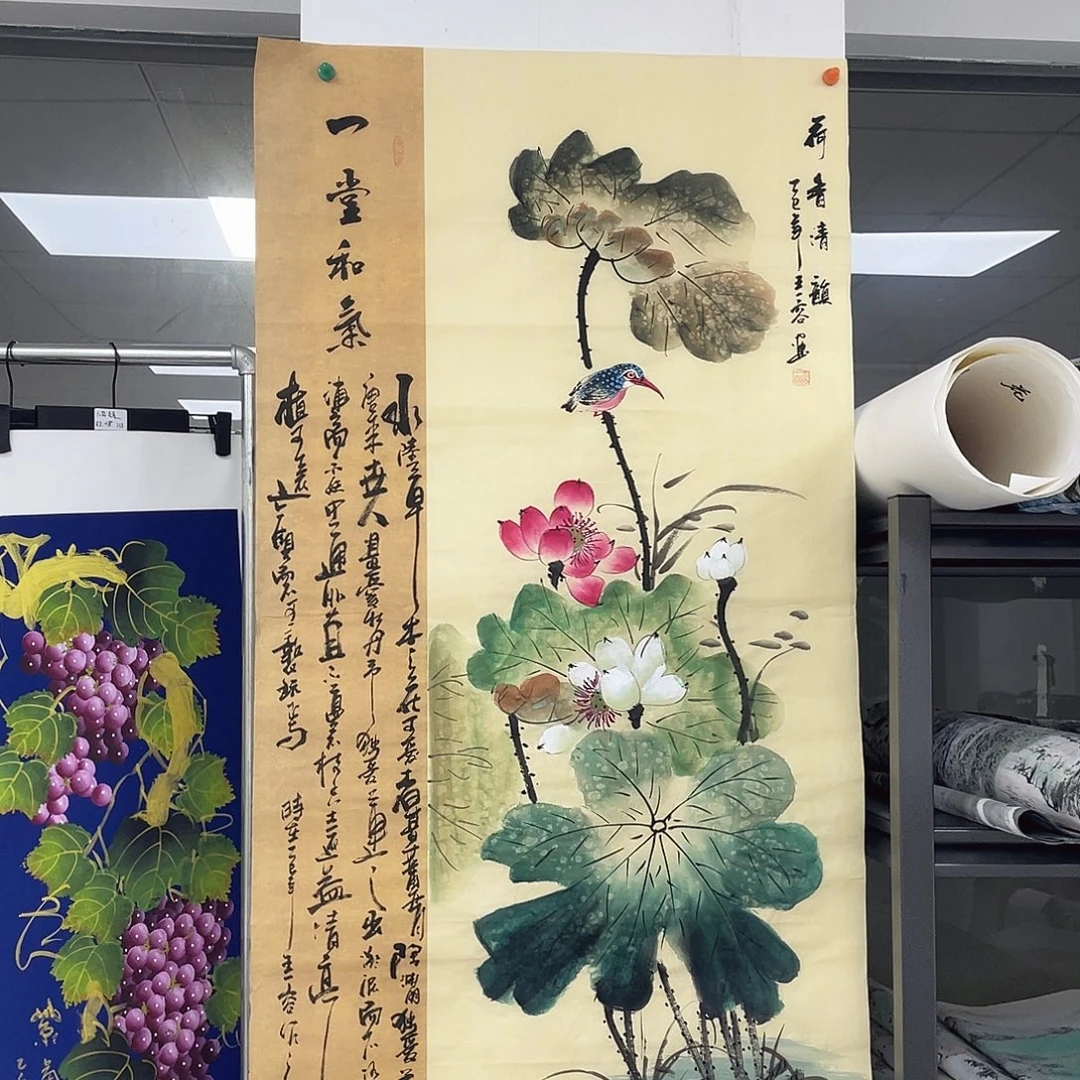 一堂和氣
水陸草木之花可愛者甚蕃晉陶淵明獨愛
唐来世人甚愛牡丹予獨愛蓮之出淤泥而不染
清漣而不妖中通外直不蔓不枝香遠益清亭
植可遠觀而不可褻玩焉
時在乙巳年王容作
荷香清韻
乙巳年王容畫
紫氣